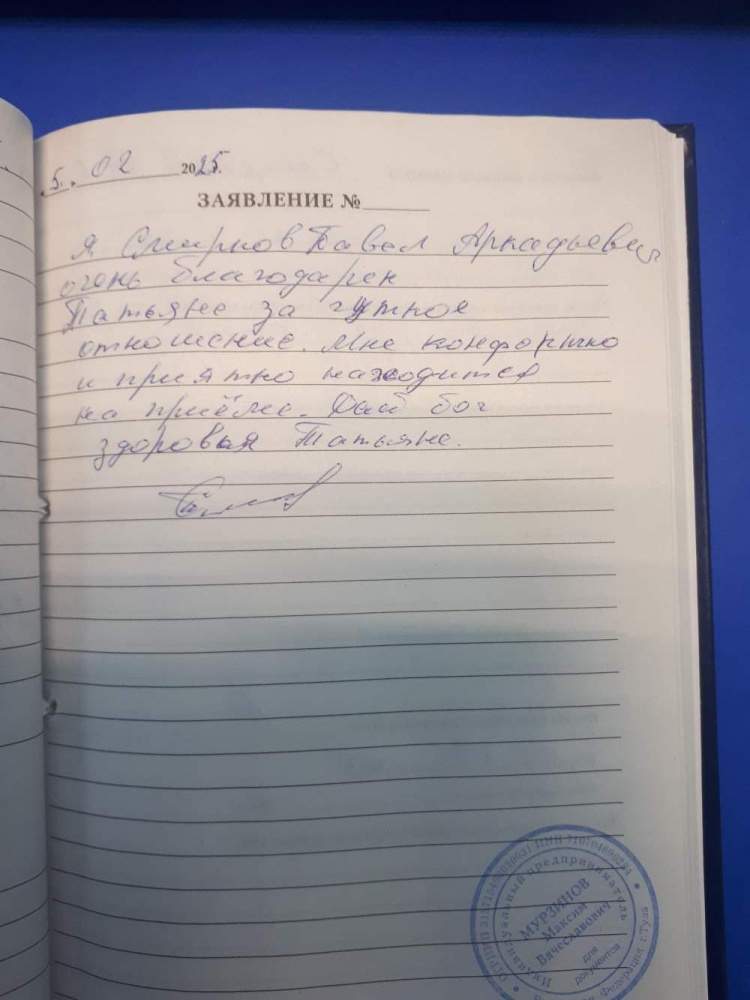 5. 02 2025.
ЗАЯВЛЕНИЕ №
Я Смирнов Павел Аркадьевич
очень благодарен
Татьяне за чуткое
отношение. Мне конфортно
и приятно находится
на приёме. Дай бог
здоровья Татьяне.
Индивидуальный предприниматель
МУРЗИНОВ
Максим
Вячеславович
для
документов
Федерация, г.Тула